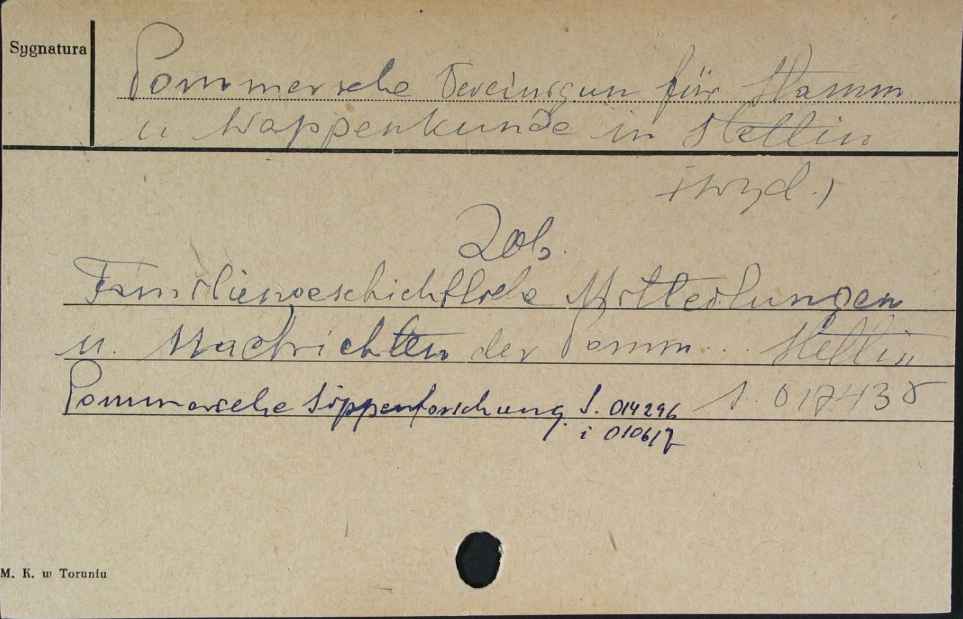 Sygnatura
Pommersche Vereinigun für Stamm
u Wappenkunde in Stettin
(wyd.)
Zob.
Familiengeschichtliche Mitteilungen
u. Nachrichten der Pomm... Stettin
Pommersche Sippenforschung S. 014296 S. 017438
i 010617
M. K. w Toruniu